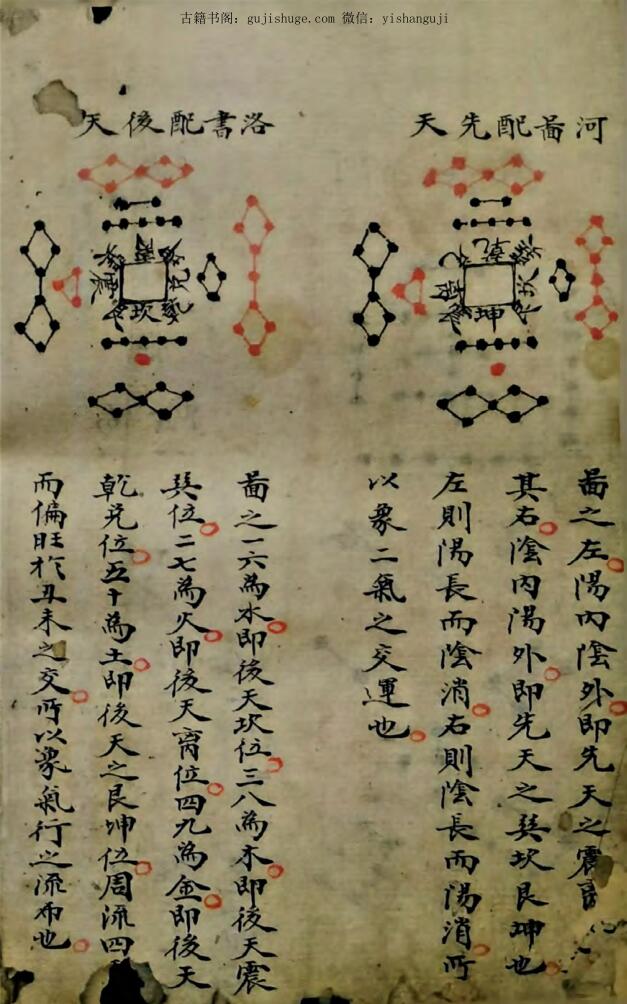 古籍书阁：gujishuge.com 微信：yishanguji
河啚配先天
乾
坎
坤
啚之左陽內陰外即先天之震
其右陰內陽外即先天之巽坎艮坤也
左則陽長而陰消右則陰長而陽消所
以象二氣之交運也
洛書配後天
震
兌
坎
啚之一六為水即後天坎位三八為木即後天震
巽位二七為火即後天禼位四九為金即後天
乾兌位五十為土即後天之艮坤位周流四
而偏旺於丑未之交所以象氣行之流布也